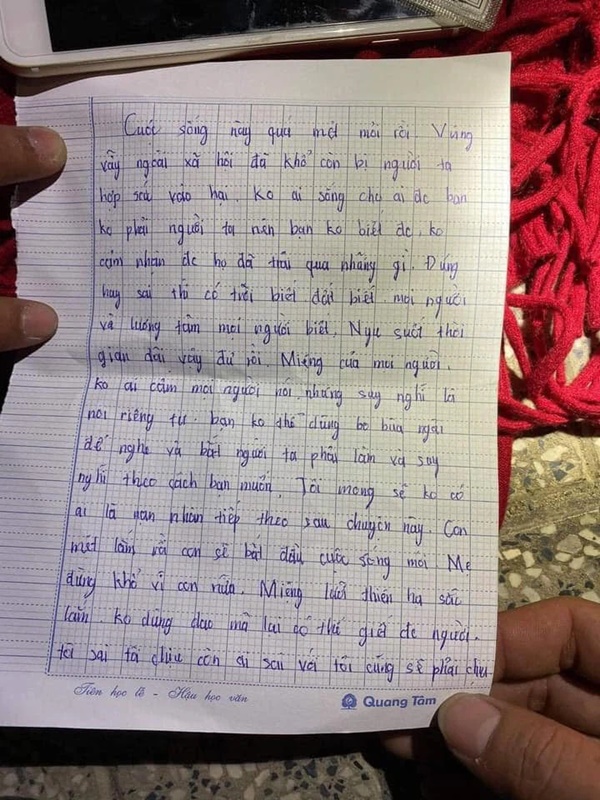 Cuốt sống này quá mệt mỏi rồi. Vùng
vẫy ngoài xã hội đã khổ còn bị người ta
hợp sức vào hại. Ko ai sống cho ai đc bạn
ko phải người ta nên bạn ko biết đc, ko
cảm nhận đc họ đã trải qua những gì. Đúng
hay sai thì có trời biết đất biết mọi người
và lương tâm mọi người biết. Ngu suốt thời
gian dài vậy đủ rồi. Miệng của mọi người.
ko ai cấm mọi người nói. những suy nghĩ là
nơi riêng tư. bạn ko thể dùng bò bùa ngải
để nghe và bắt người ta phải làm và suy
nghĩ theo cách bạn muốn. Tôi mong sẽ ko có
ai là nạn nhân tiếp theo sau chuyện này. Con
mệt lắm rồi con sẽ bắt đầu cuộc sống mới. Mẹ
đừng khổ vì con nữa. Miệng lưỡi thiên hạ sắc
lắm. ko dùng dao mà lại có thể giết đc người.
tôi sai tôi chịu còn ai sai với tôi cũng sẽ phải chịu
Tiên học lễ - Hậu học văn
Quang Tâm